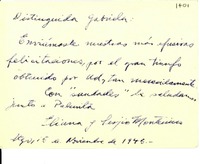 1401
Distinguida Gabriela:
Enviámosle nuestras más efusivas
felicitaciones, por el gran triunfo
obtenido por Ud. tan merecidamente.
Con "saudades" la saludan,
junto a Palmita
Eliana y Sergio Montecinos
Noviembre 1945.-